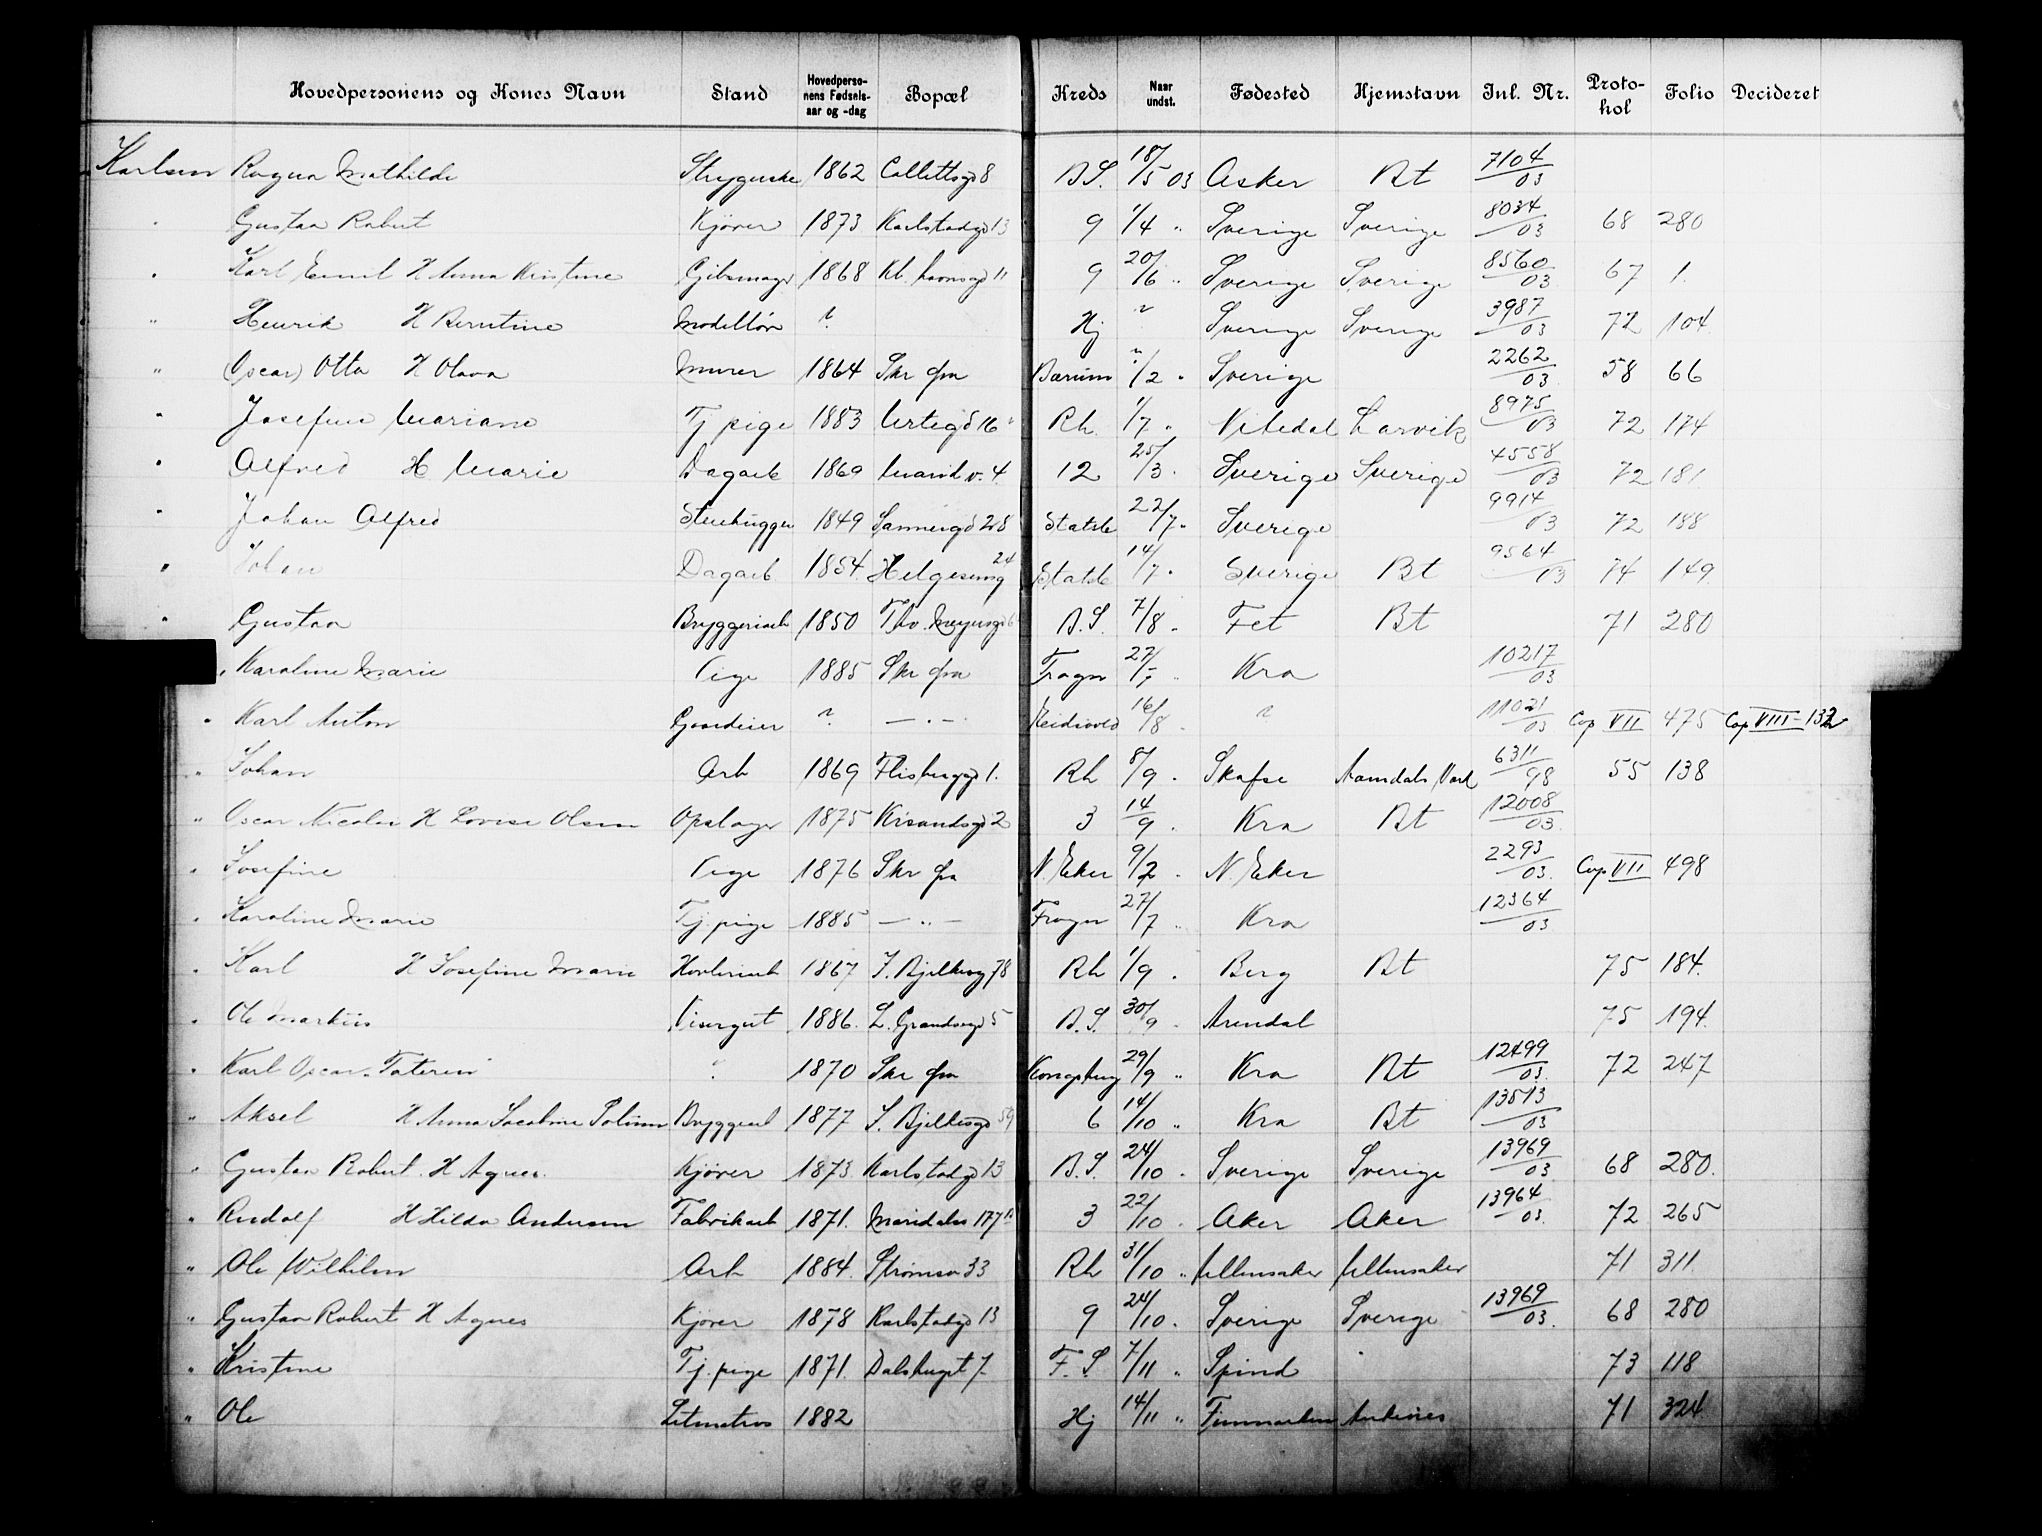 Hovedpersonens og Kones Navn Stand Hovedpersonens Fødselsaar og -dag Bopæl Kreds Naar undst. Fødested Hjemstavn Inl. Nr. Protokol Folio Decideret
Karlsen Ragna Mathilde Strygerske 1862 Collettsgd 8 B.S. 18/5 03 Asker Bt 7104/03
" Gustav Robert Kjører 1873 Karlstadgd 13 9 1/4 " Sverige Sverige 8034/03 68 280
" Karl Emil H Anna Kristine Gibsmager 1868 Kb.havnsgd 11 9 20/6 " Sverige Sverige 8560/03 67 1.
" Henrik H Berntine Modellør ? Hj ? Sverige Sverige 3987/03 72 104
" (Oscar) Otto H Olava Murer 1864 Skr fra Bærum ?/2 " Sverige 2262/03 58 66
" Josefine Mariane Tj pige 1883 Urtegd 16 Rh. 1/7 " Larvik 8975/03 72 174
" Alfred H Marie Dagarb 1869 Marid v. 4. 12 25/3 " Sverige Sverige 4558/03 72 181
" Johan Alfred Stenhugger 1849 Sannergd 28 Statsb 22/7 " Sverige 9914/03 72 188
" Johan Dagarb 1854. Helgesensg 24 Statsb 14/7 " Sverige Bt 9564/03 74 149
" Gustav Bryggeriarb 1850 Thv. Meyersgd 6 B.S. 7/8 " Fet Bt 71 280
" Karoline Marie Pige 1885 Skr fra Frogn 27/7 " Kra 10217/03
" Karl Anton Gaardeier ? — " — Eidsvold 16/8 " ? 11021/03 Cop VII 475 Cop VIII-132
" Johan Arb 1869 Flisberggd 1. Rh 8/9 " Skafse Aamdals Værk 6311/98 55 138
" Oscar Nicolai H Lovise Olsen Opslager 1875 Krsandsgd 2 3 14/9 " Kra Bt 12008/03
" Josefine Pige 1876 Skr fra N. Eker 9/2 " N. Eker 2293/03. Cop VII 498
" Karoline Marie Tj. pige 1885 — " — Frogn 27/7 " Kra 12364/03
" Karl H Josefine Marie Høvleriarb 1867 J. Bjelkesg 78 Rh 1/9 " Berg Bt 75 184.
" Ole Markus Visergut 1886. L. Grændsegd 5 B.S. 30/9 " Arendal 75 194.
" Karl Oscar. Tateren ? 1870 Skr fra Kongsberg 29/9 " Kra Bt 12499/03 72 247
" Aksel H Anna Jacobine Bryggearb 1877 J. Bjelkesgd 59 6 14/10 " Kra Bt 13513/03
" Gustav Robert. H Agnes. Kjører 1873 Karlstadgd 13 B.S. 24/10 " Sverige Sverige 13969/03 68 280.
" Rudolf H Hilda Andersen Fabrikarb 1871. Maridalsv 177 3 22/10 " Aker Aker 13964/03. 72 265
" Ole Wilhelm Arb 1884. Strømsv 33 Rh 31/10 " Ullensaker Ullensaker 71 311
" Gustav Robert H Agnes Kjører 1878 Karlstadgd 13 9 24/10 " Sverige Sverige 13969/03. 68 280
" Kristine Tj. pige 1871. Dalsbergst 7 F.S. 7/11 " Spind 73 118
" Ole Letmatros 1882 Hj 14/11 " Finmarken Andenes 71 324